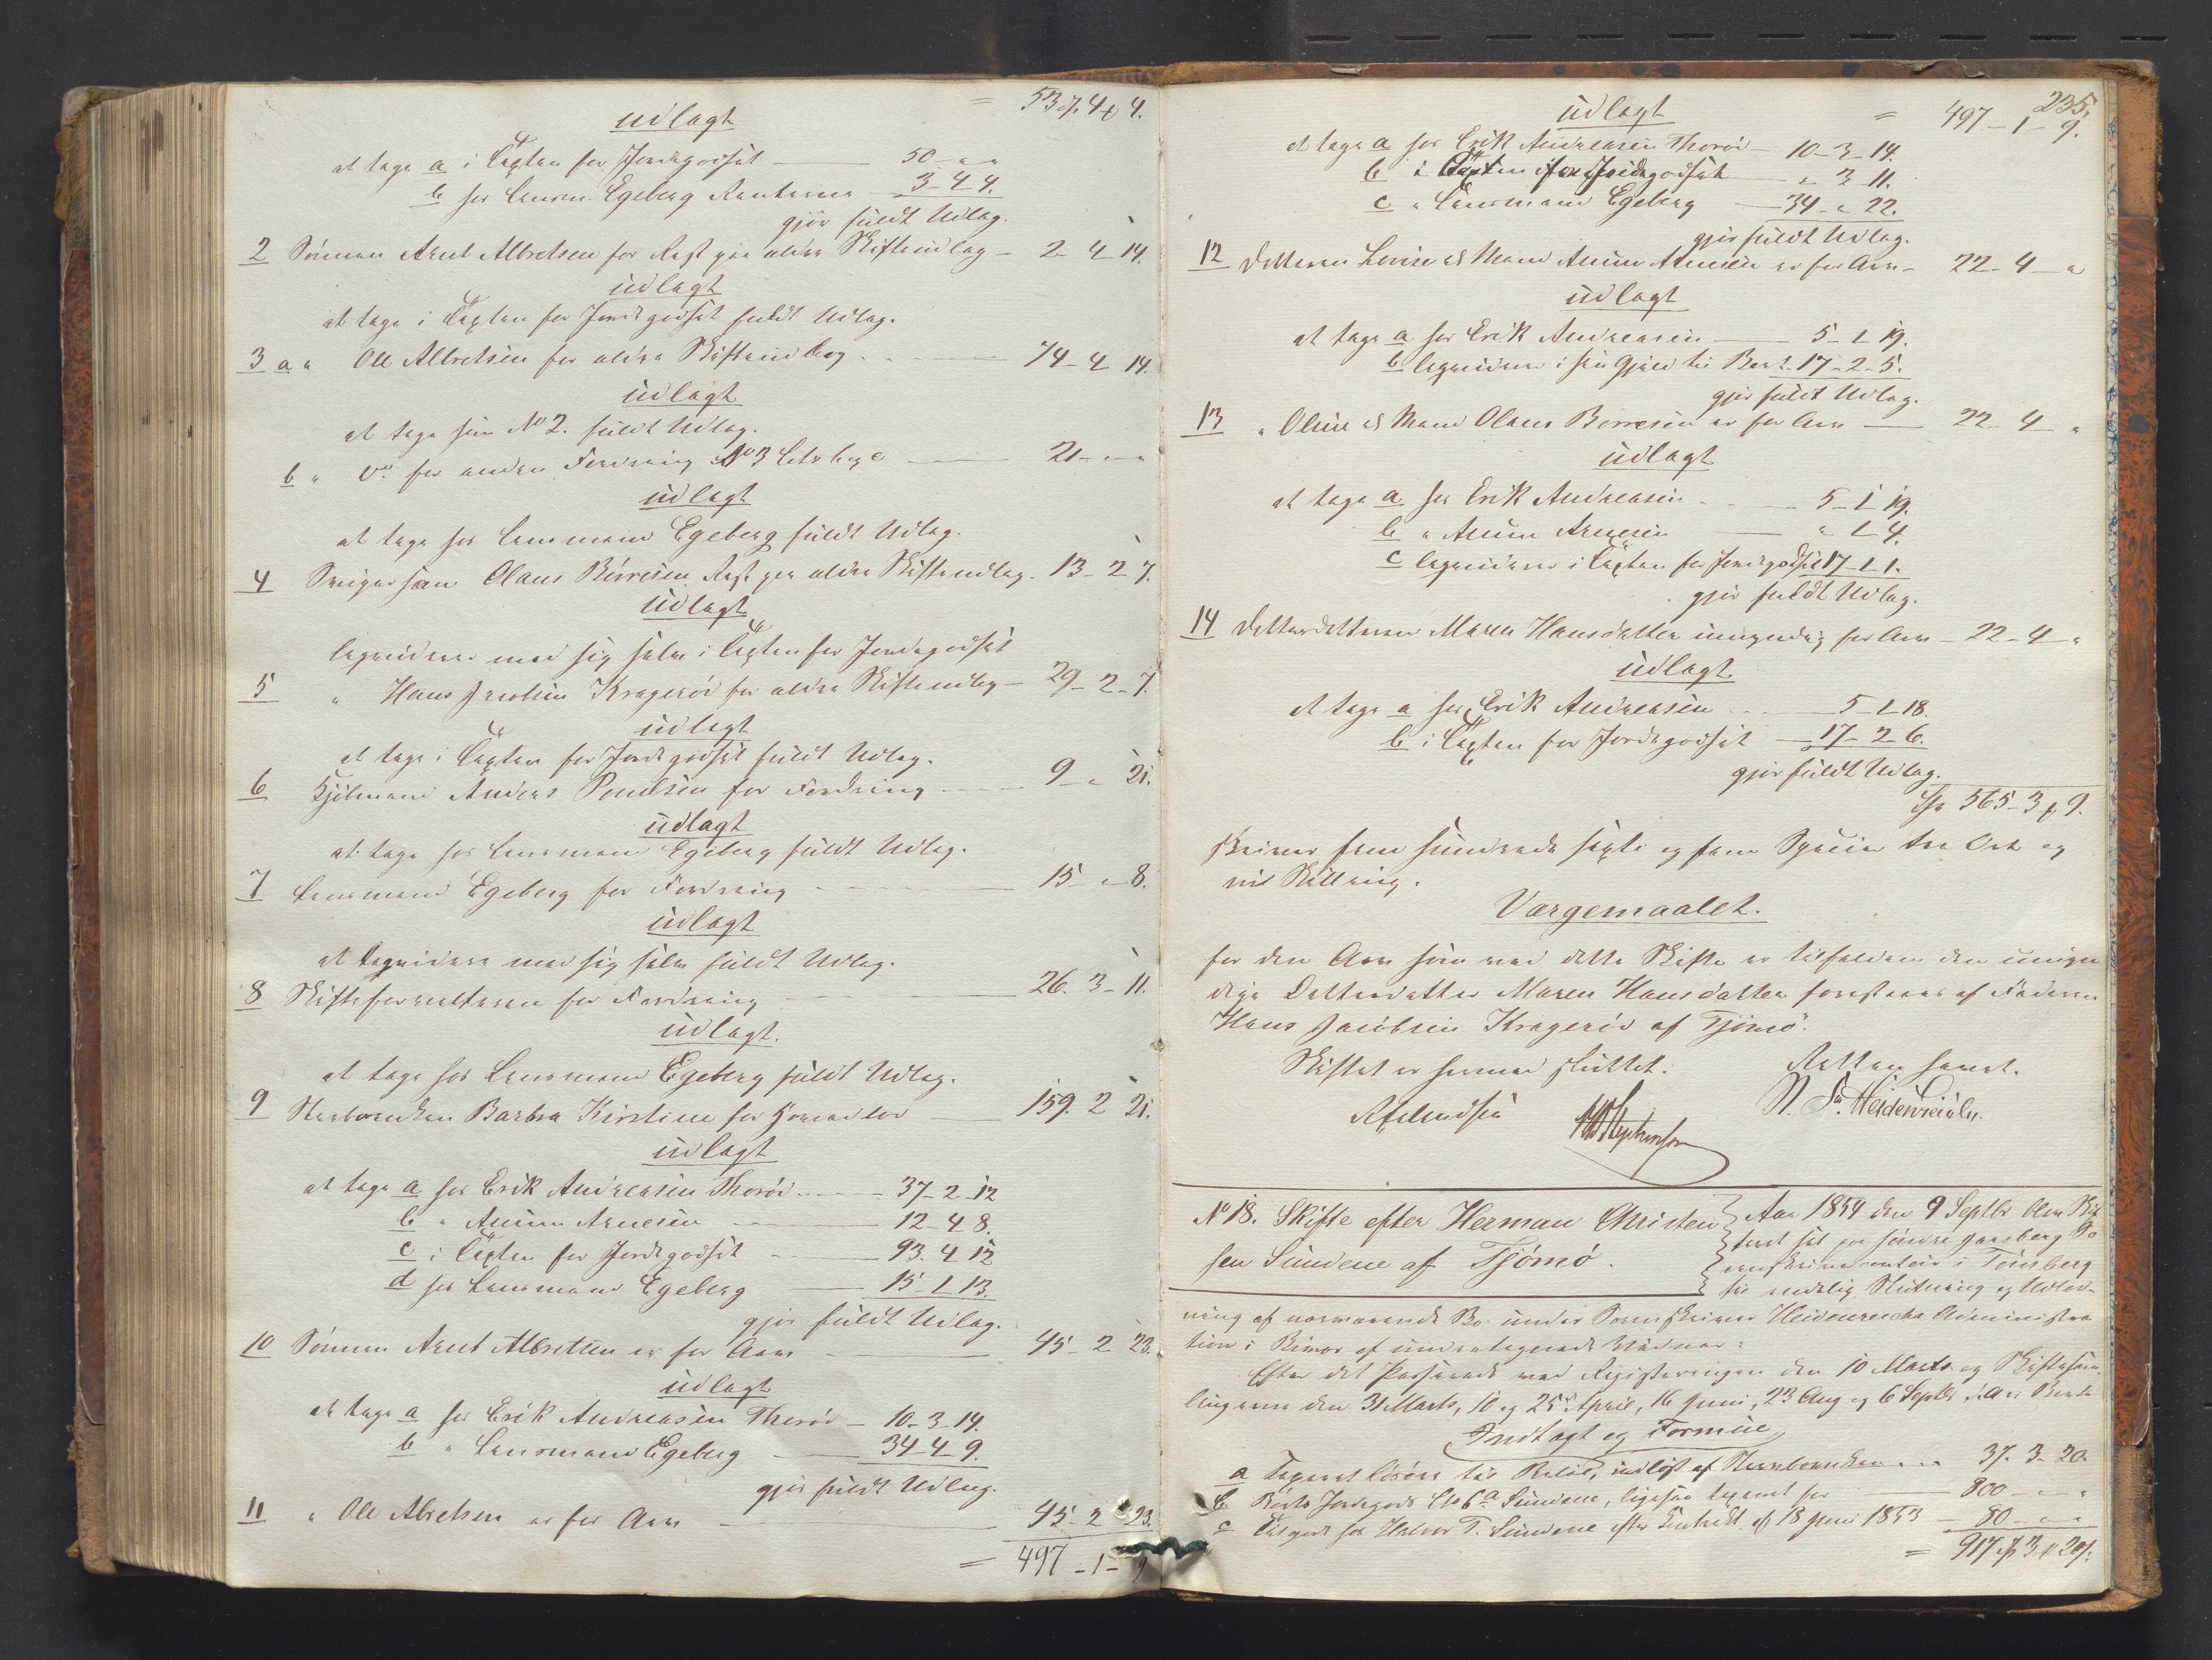 = 53 4 4.
udlagt
at tage a i Taxten for Jordegodset — 50 - " - "
b hos Lensm. Egeberg Renterne — 3 - 4 4.
gjør fuldt Udlag.
2 Sønnen Arnt Albretsen for Rest paa ældre Skifteudlag — 2 - 4 14.
udlagt
at tage i Taxten for Jordegodset fuldt Udlag.
3 a " Ole Albretsen for ældre Skifteudlæg — 74 - 4 14.
udlagt
at tage som No 2. fuldt Udlag.
b " for anden Fordring No 3 — 21 - " - "
udlagt
at tage hos Lensmand Egeberg fuldt Udlag.
4 Svigersøn Olaus Börresen Rest paa ældre Skifteudlæg. 13 - 2 7.
udlagt
liqvideres med sig selv i Taxten for Jordegodset
5 " Hans Jacobsen Kragerød for ældre Skifteudlæg — 29 - 2 - 7.
udlagt
at tage i Taxten for Jordegodset fuldt Udlag.
6 Kjøbmand Anders Poulsen for Fordring — 9 - " 21.
udlagt
at tage hos Lensmand Egeberg fuldt Udlag.
7 Lensmand Egeberg for Fordring — 15 - " 8.
udlagt
at liqvidere med sig selv fuldt Udlag.
8 Skifteforvalteren for Fordring — 26. 3 - 11.
udlagt.
at tage hos Lensmand Egeberg fuldt Udlag.
9 Sterboenken Barbra Kirstine for Hovedlod — 159. 2 21.
udlagt
at tage a hos Erik Andreasen Thorød — 37 - 2 - 12
b " Anun Arnesen — 12 - 4 8.
c i Taxten for Jordegodset — 93. 4 12
d hos Lensmand Egeberg — 15 - 1 13.
gjør fuldt Udlag.
10 Sønnen Arnt Albretsen er for Arv — 45 - 2 23.
udlagt
at tage a hos Erik Andreasen Thorød — 10 - 3 - 14.
b " Lensmand Egeberg — 34 - 4 9.
gjør fuldt Udlag.
11 " Ole Albretsen er for Arv — 45 - 2 23.
= 497 - 1 - 9
235.
udlagt = 497 - 1 - 9.
at tage a hos Erik Andreasen Thorød — 10 - 3 - 14.
b i Taxten for Jordegodset — " 3 11.
c " Lensmand Egeberg — 34 - " 22.
gjør fuldt Udlag.
12 Datteren Lovise & Mand Anun Arnesen er for Arv — 22 - 4 - "
udlagt
at tage a hos Erik Andreasen — 5 - 1 19.
b liqviderer i sin Gjæld til Boet. 17 - 2 - 5.
gjør fuldt Udlag.
13 " Oline & Mand Olaus Börresen er for Arv — 22 - 4 - "
udlagt
at tage a hos Erik Andreasen — 5 - 1 19.
b " Anun Arnesen — " 1 4.
c liqviderer i Taxten for Jordegodset 17 - 1 1.
gjør fuldt Udlag.
14 Datterdatteren Maren Hansdatter umyndig for Arv — 22 - 4 - "
udlagt.
at tage a hos Erik Andreasen — 5 - 1 18.
b i Taxten for Jordegodset — 17 - 2 6.
gjør fuldt Udlag.
565 - 3 9.
skriver fem hundrede sexti og fem Specier tre Ort og
ni Skilling.
Værgemaalet.
for den Arv som ved dette Skifte er tilfalden den umyn
dige Datterdatter Maren Hansdatter forestaaes af Faderen
Hans Jacobsen Kragerød af Tjömö.
Skiftet er hermed sluttet. Retten hævet.
N. Heidenreich.
No 18. Skifte efter Herman Christen
sen Sundene af Tjömö.
Aar 1854 den 9 Septbr blev Skif
teret sat paa søndre Jarlsberg So
renskrivercontoir i Tönsberg
til endelig Slutning og Udlod-
ning af nærværende Bo under Sorenskriver Heidenreichs Administra
tion i Bivær af undertegnede Vidner:
Efter det Passerede ved Registreringen den 10 Marts og Skiftesam
lingerne den 31 Marts, 10 og 25de April, 16 Juni, 23 Aug og 6 Septbr d. A. er Boets
Indtægt og Formue
a Taxeret Løsøre indløst af Sterboenken — 37. 3 - 20.
b Boets Jordegods Lb 6a Sundene, ligesaa taxeret for — 800 - " - "
c Tilgode hos Halvor T. Sundene efter Contract af 18 Juni 1853 — 80 - " - "
= 917 3 20